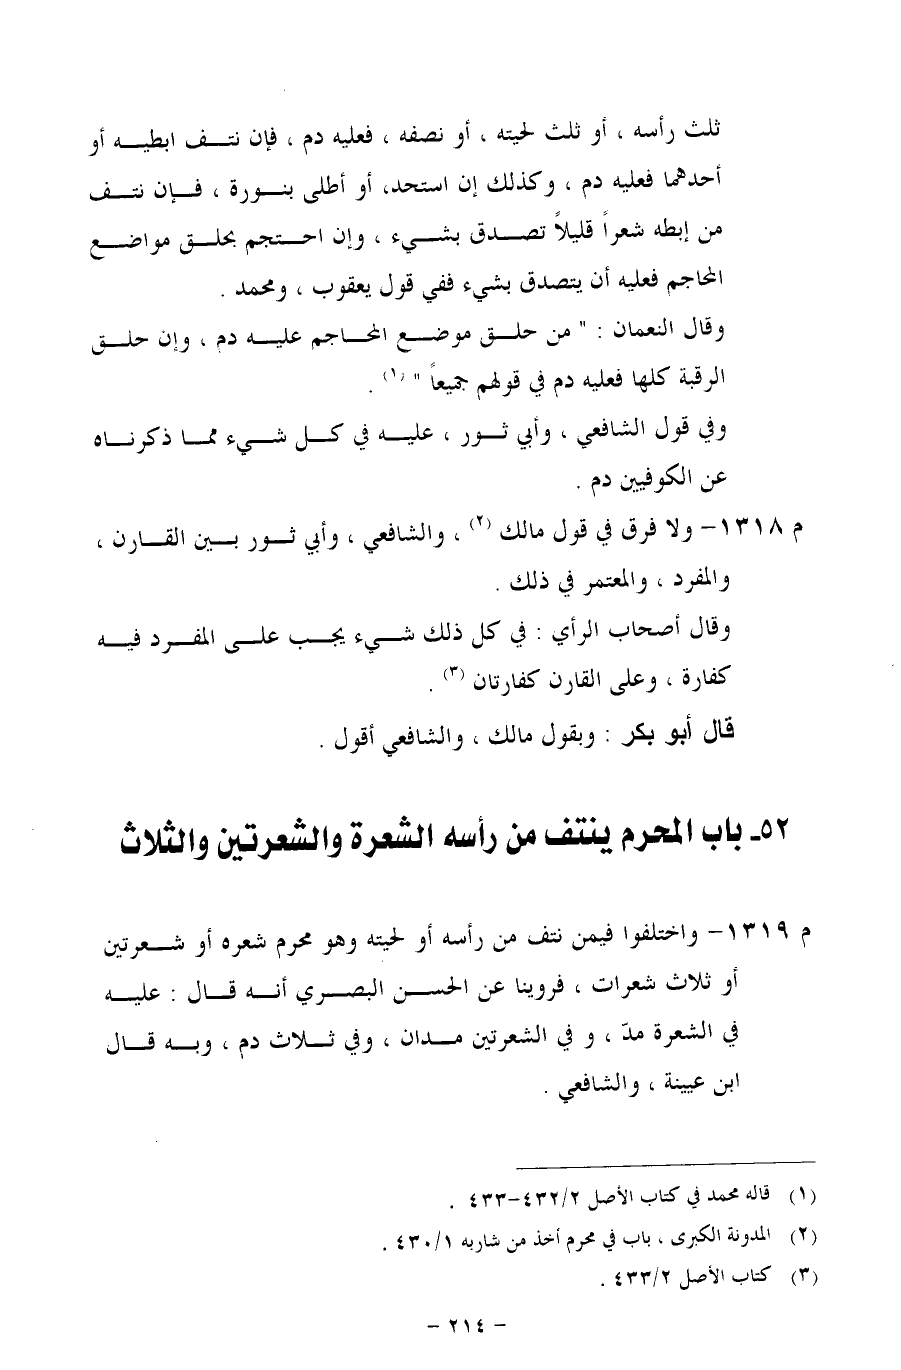 ثلث رأسه ، أو ثلث لحيته ، أو نصفه ، فعليه دم ، فإن نتـــف ابطيـــه أو
أحدهما فعليه دم ، وكذلك إن استحد، أو أطلى بنـــورة ، فـــإن نتـــف
من إبطه شعراً قليلاً تصـــدق بشـــيء ، وإن احـــتجم بحلـــق مواضـــع
المحاجم فعليه أن يتصدق بشيء ففي قول يعقوب ، ومحمد .
وقال النعمان : " من حلـــق موضـــع المحـــاجم عليـــه دم ، وإن حلـــق
الرقبة كلها فعليه دم في قولهم جميعاً " (١) .
وفي قول الشافعي ، وأبي ثـــور ، عليـــه في كـــل شـــيء ممـــا ذكرنـــاه
عن الكوفيين دم .
م ١٣١٨- ولا فرق في قول مالك (٢) ، والشافعي ، وأبي ثـــور بـــين القـــارن ،
والمفرد ، والمعتمر في ذلك .
وقال أصحاب الرأي : في كل ذلك شـــيء يجـــب علـــى المفـــرد فيـــه
كفارة ، وعلى القارن كفارتان (٣) .
قال أبو بكر : وبقول مالك ، والشافعي أقول .
٥٢ـ باب المحرم ينتف من رأسه الشعرة والشعرتين والثلاث
م ١٣١٩- واختلفوا فيمن نتف من رأسه أو لحيته وهو محرم شعره أو شـــعرتين
أو ثلاث شعرات ، فروينا عن الحســـن البصـــري أنـــه قـــال : عليـــه
في الشعرة مدّ ، و في الشعرتين مـــدان ، وفي ثـــلاث دم ، وبـــه قـــال
ابن عيينة ، والشافعي .
(١) قاله محمد في كتاب الأصل ٤٣٢/٢-٤٣٣ .
(٢) المدونة الكبرى ، باب في محرم أخذ من شاربه ٤٣٠/١ .
(٣) كتاب الأصل ٤٣٣/٢ .
- ٢١٤ -